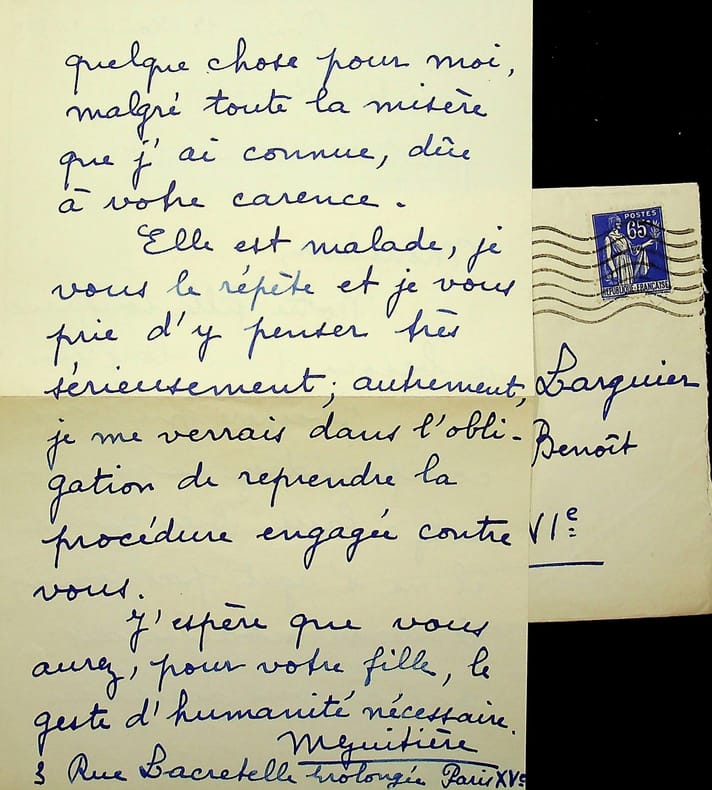 quelque chose pour moi,
malgré toute la misère
que j'ai connue, dûe
à votre carence.
Elle est malade, je
vous le répète et je vous
prie d'y penser très
sérieusement; autrement,
je me verrais dans l'obli-
gation de reprendre la
procédure engagée contre
vous.
J'espère que vous
aurez, pour votre fille, le
geste d'humanité nécessaire.
3 Rue Lacretelle prolongée Paris XVe
POSTES
65
REPUBLIQUE FRANÇAISE
Larguier
Benoît
VIe